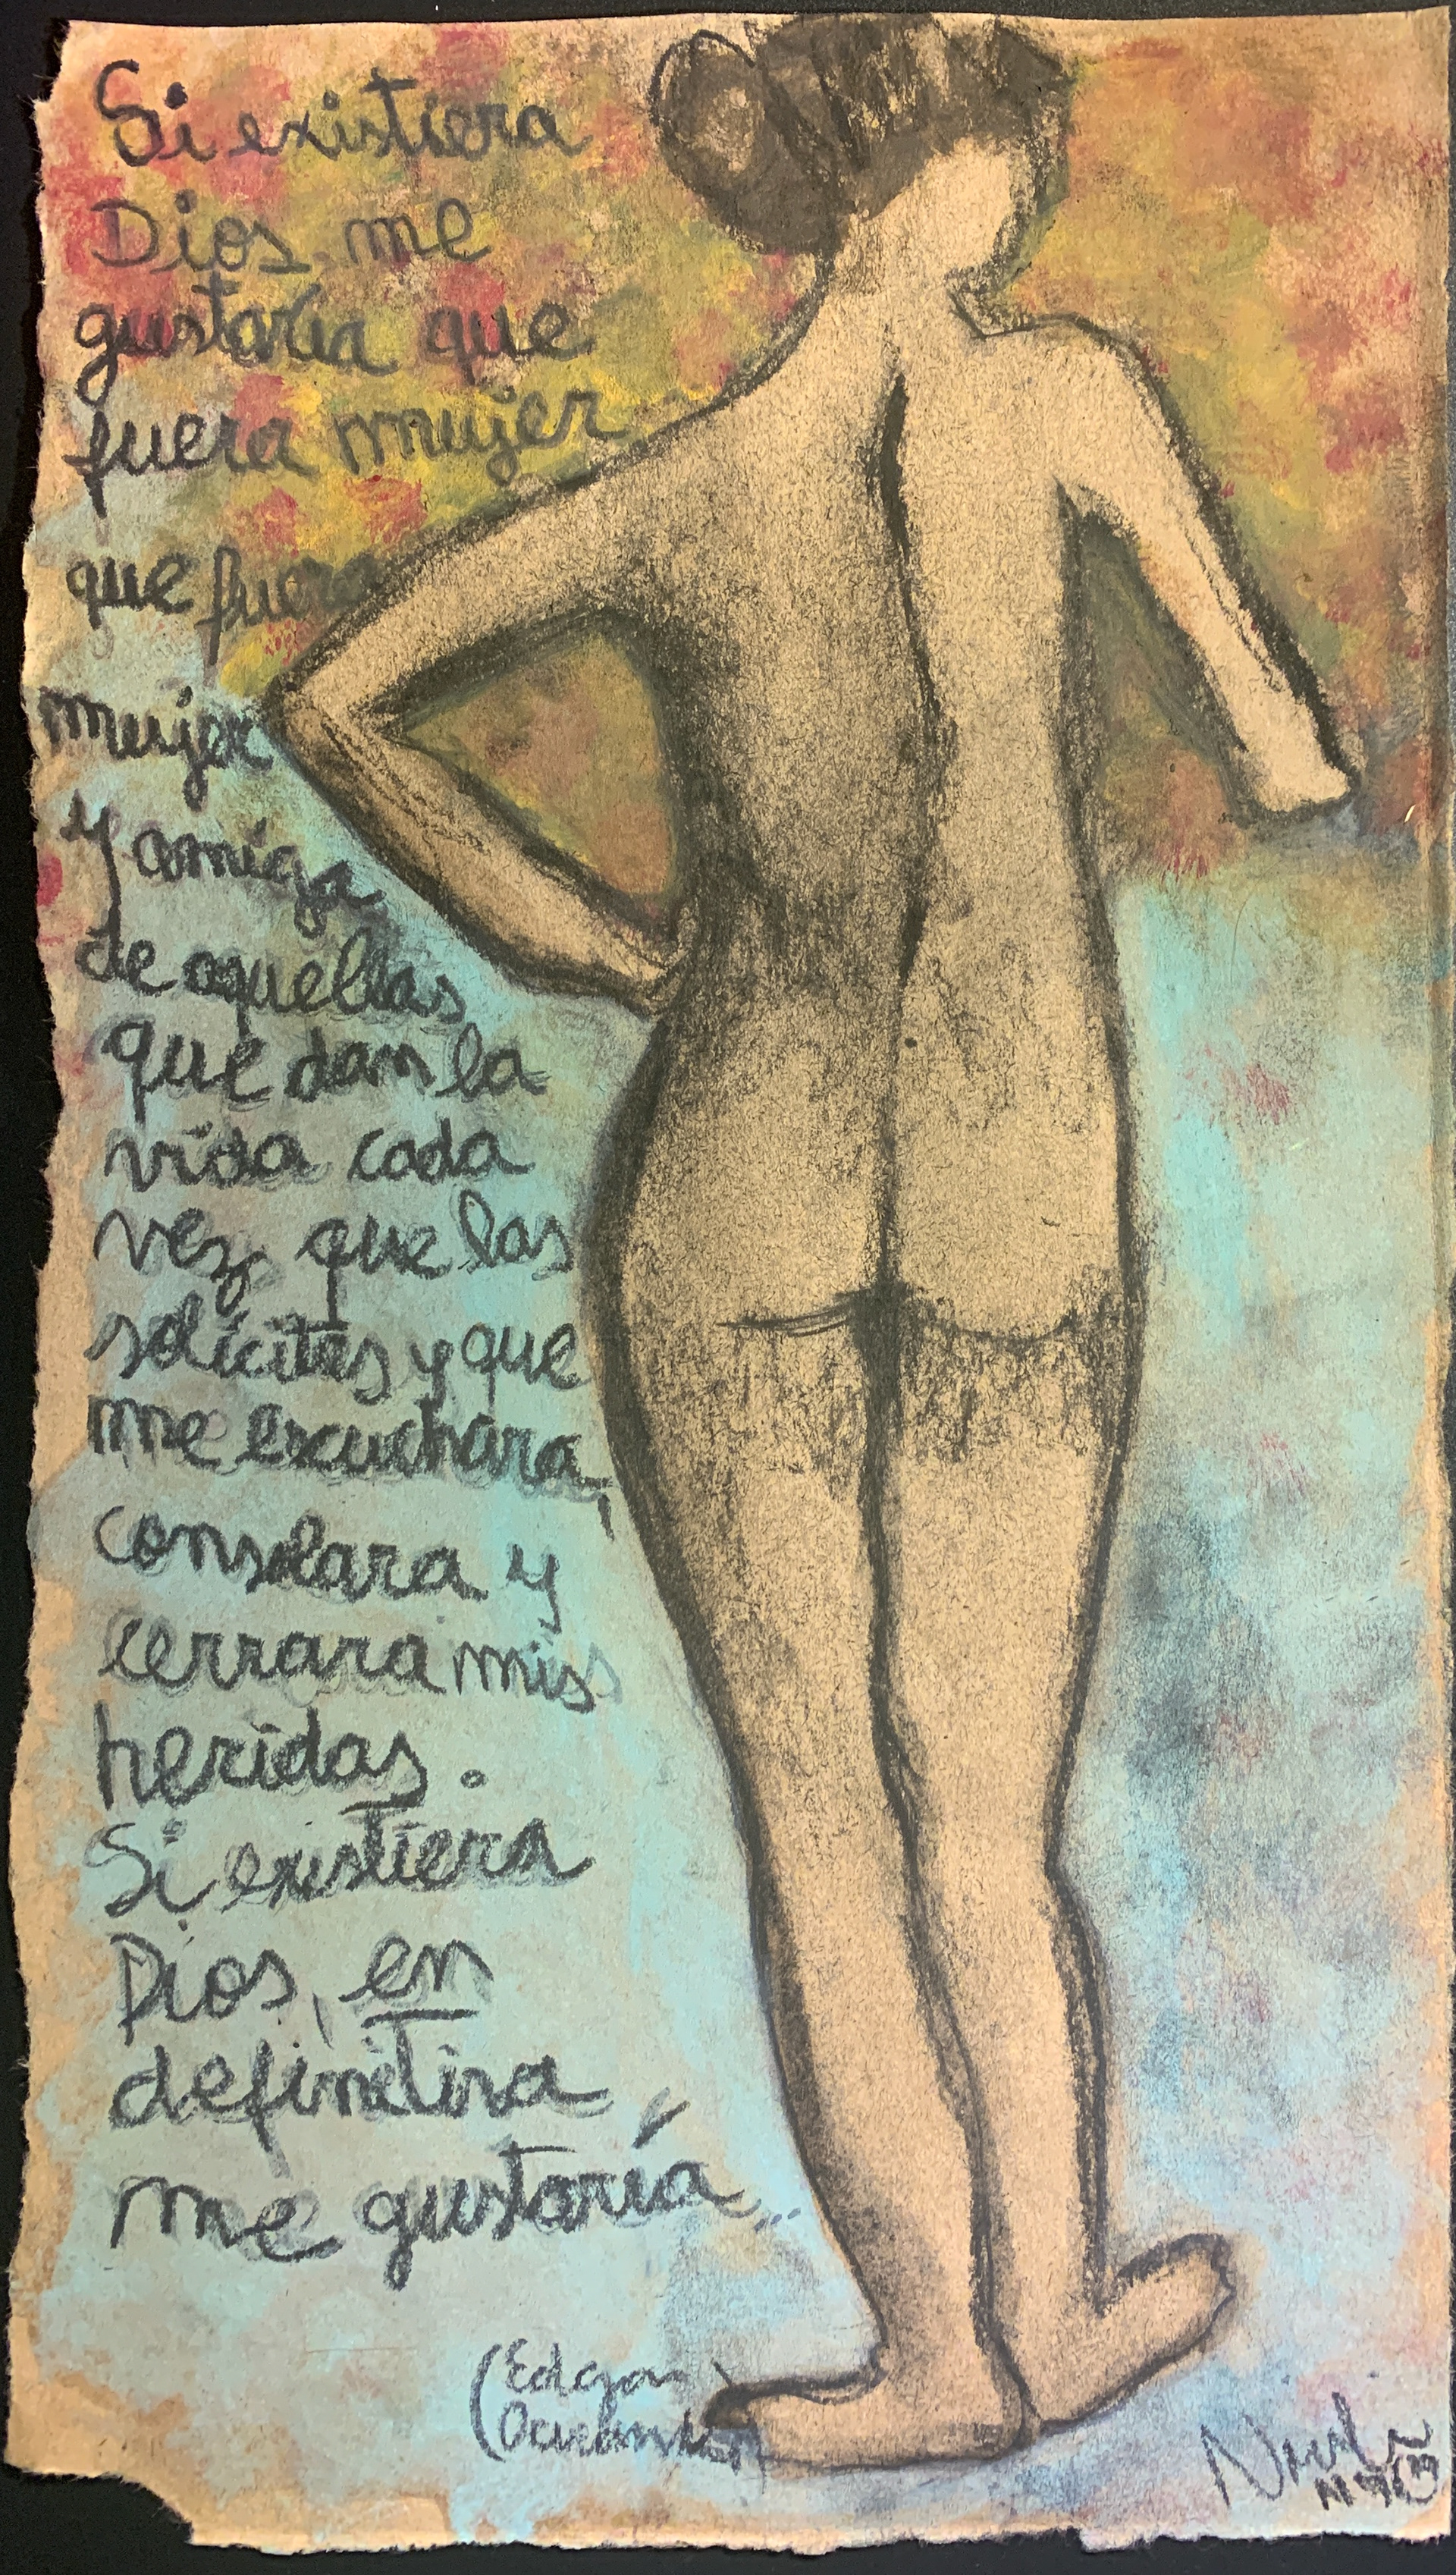 Si existiera
Dios me
gustaría que
fuera mujer
que fuera
mujer
y amiga
de aquellas
que dan la
vida cada
vez que las
solicitas y que
me escuchara,
consolara y
cerrara mis
heridas.
Si existiera
Dios, en
definitiva
me gustaría...
(Edgar